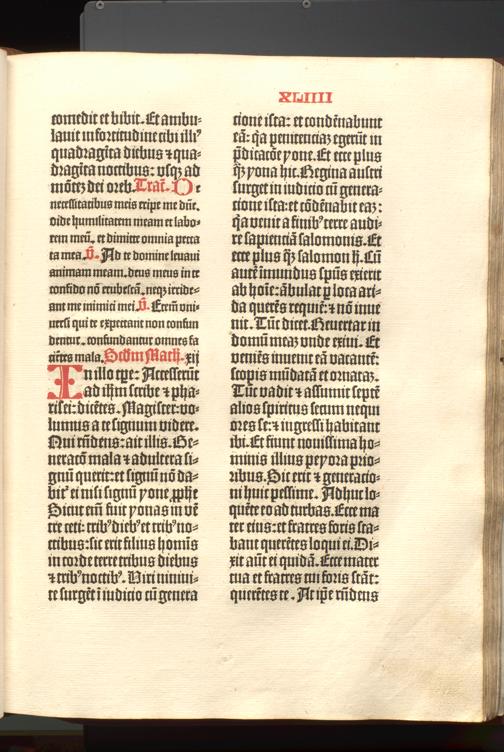 XLIIII
comedit et bibit. Et ambu⸗
lauit in fortitudine cibi illiꝰ
quadragīta diebus ⁊ qua⸗
dragīta noctibus: vsqꝫ ad
mōtem dei oreb. Tract. De
necessitatibus meis eripe me dn̄e.
vide humilitatem meam et labo⸗
rem meū. et dimitte omnia pecca
ta mea. v̄. Ad te domine leuaui
animam meam. deus meus in te
confido nō erubescā. neqꝫ irride⸗
ant me inimici mei. v̄. Etem̄ vni⸗
uersi qui te expectant non confun
dentur. confundantur omnes fa
ciētes mala. Scḋm Math. xij
In illo tꝑe: Accesserūt
ad ihm̄ scribe ⁊ pha⸗
risei: dicētes. Magister: vo⸗
lumus a te signum videre.
Qui rn̄dens: ait illis. Ge⸗
neracō mala ⁊ adultera si⸗
gnū querit: et signū nō da⸗
bit᷑ ei nisi signū yone ꝓphe
Sicut em̄ fuit yonas in vē
tre ceti: tribꝰ diebꝰ et tribꝰ no⸗
ctibus: sic erit filius homīs
in corde terre tribus diebus
⁊ tribꝰ noctibꝰ. Viri niniui⸗
te surgēt ī iudicio cū genera
cione ista: et condēnabunt
eā: q̄a penitenciaꝫ egerūt in
p̄dicacōe yone. Et ecce plus
qꝫ yona hic. Regina austri
surget in iudicio cū genera⸗
cione ista: et cōdēnabit eaꝫ:
q̄a venit a finibꝰ terre audi⸗
re sapienciā salomonis. Et
ecce plus qꝫ salomon h̄. Cū
autē īmundus sp̄us exierit
ab hoīe: ābulat ꝑ loca ari⸗
da querēs requiē: ⁊ nō inue
nit. Tūc dicet. Reuertar in
domū meaꝫ vnde exiui. Et
veniēs inuenit eā vacantē:
scopis mūdatā et ornataꝫ.
Tūc vadit ⁊ assumit septē
alios spiritus secum nequi
ores se: ⁊ ingressi habitant
ibi. Et fiunt nouissima ho⸗
minis illius peyora prio⸗
ribus. Sic erit ⁊ generacio⸗
ni huic pessime. Adhuc lo⸗
quēte eo ad turbas. Ecce ma
ter eius: et fratres foris sta⸗
bant querētes loqui ei. Di⸗
xit aūt ei quidā. Ecce mater
tua et fratres tui foris stāt:
querētes te. At ip̄e rn̄dens